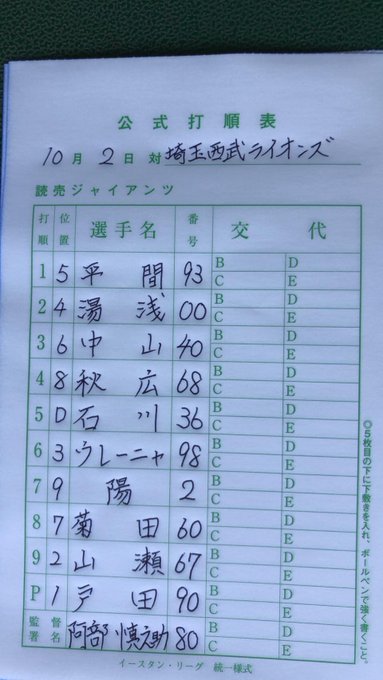 公式打順表
10月2日 対 埼玉西武ライオンズ
読売ジャイアンツ
打順 位置 選手名 番号 交代
1 5 平間 93 B D C E
2 4 湯浅 00 B D C E
3 6 中山 40 B D C E
4 8 秋広 68 B D C E
5 D 石川 36 B D C E
6 3 ウレーニャ 98 B D C E
7 9 陽 2 B D C E
8 7 菊田 60 B D C E
9 2 山瀬 67 B D C E
P 1 戸田 90 B D C E
監督署名 阿部慎之助 80 B D C E
イースタン・リーグ 統一様式
◎5枚目の下に下敷きを入れ、ボールペンで強く書くこと。